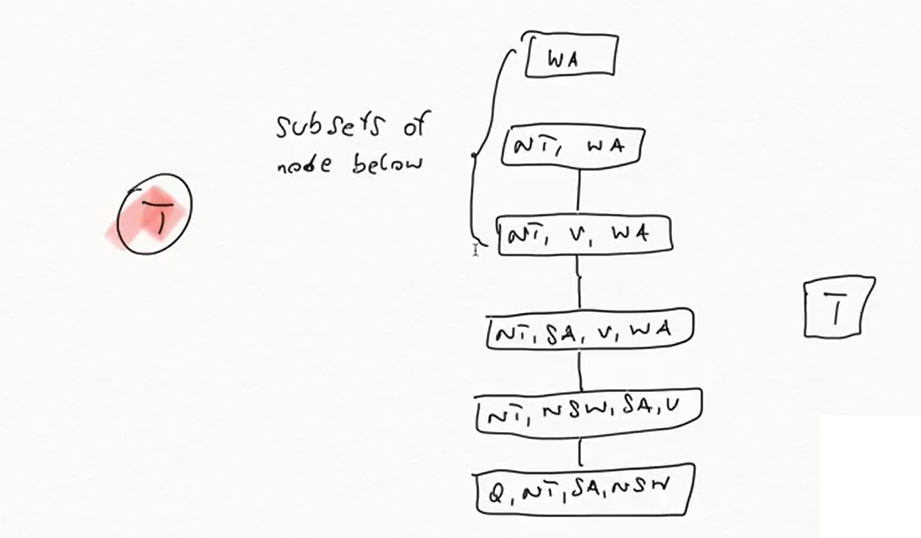 WA
subsets of
node below
NT, WA
T
NT, V, WA
T
NT, SA, V, WA
NT, NSW, SA, V
Q, NT, SA, NSW